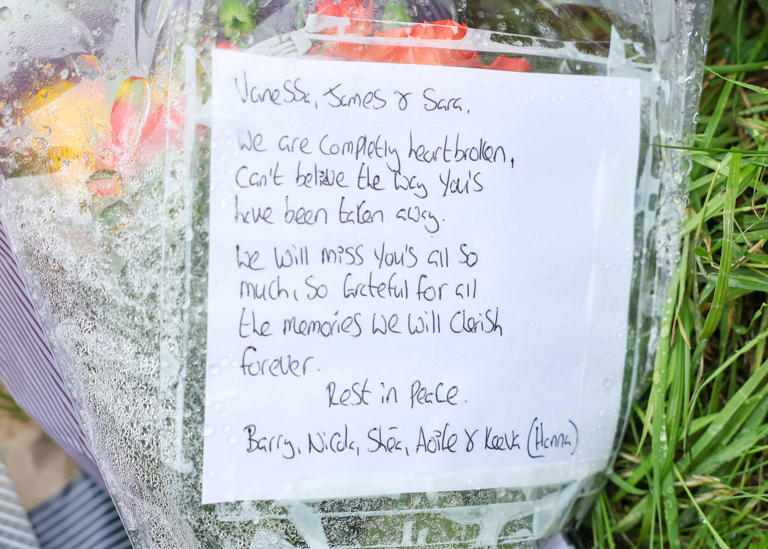 Vanessa, James & Sara,
We are completly heartbroken,
Can't believe the way you's
have been taken away.
We will miss you's all so
much, so Grateful for all
the memories we will Cherish
forever.
Rest in Peace.
Barry, Nicola, Shéa, Aoife & Keeva (Hanna)